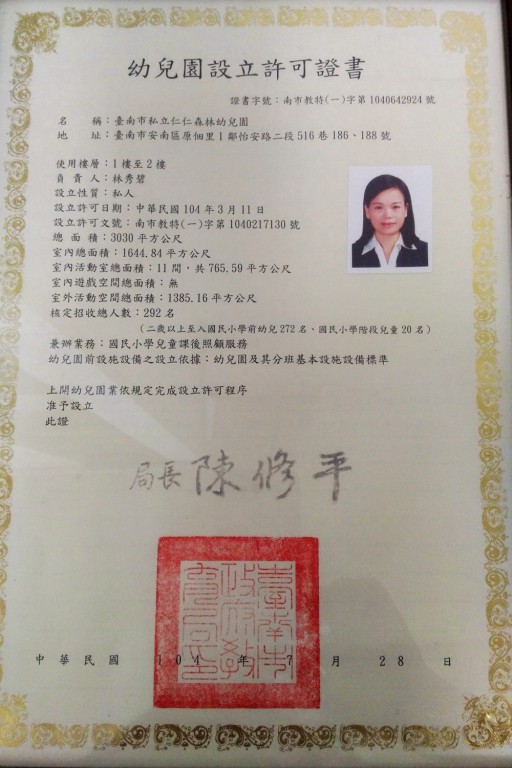 幼兒園設立許可證書
證書字號：南市教特(一)字第1040642924號
名　　稱：臺南市私立仁仁森林幼兒園
地　　址：臺南市安南區原佃里1鄰怡安路二段516巷186、188號
使用樓層：1樓至2樓
負 責 人：林秀碧
設立性質：私人
設立許可日期：中華民國104年3月11日
設立許可文號：南市教特(一)字第1040217130號
總 面 積：3030平方公尺
室內總面積：1644.84平方公尺
室內活動室總面積：11間，共765.59平方公尺
室內遊戲空間總面積：無
室外活動空間總面積：1385.16平方公尺
核定招收總人數：292名
（二歲以上至入國民小學前幼兒272名、國民小學階段兒童20名）
兼辦業務：國民小學兒童課後照顧服務
幼兒園前設施設備之設立依據：幼兒園及其分班基本設施設備標準
上開幼兒園業依規定完成設立許可程序
准予設立
此證
局長 陳修平
臺南市政府教育局印
中華民國 104 年 7 月 28 日